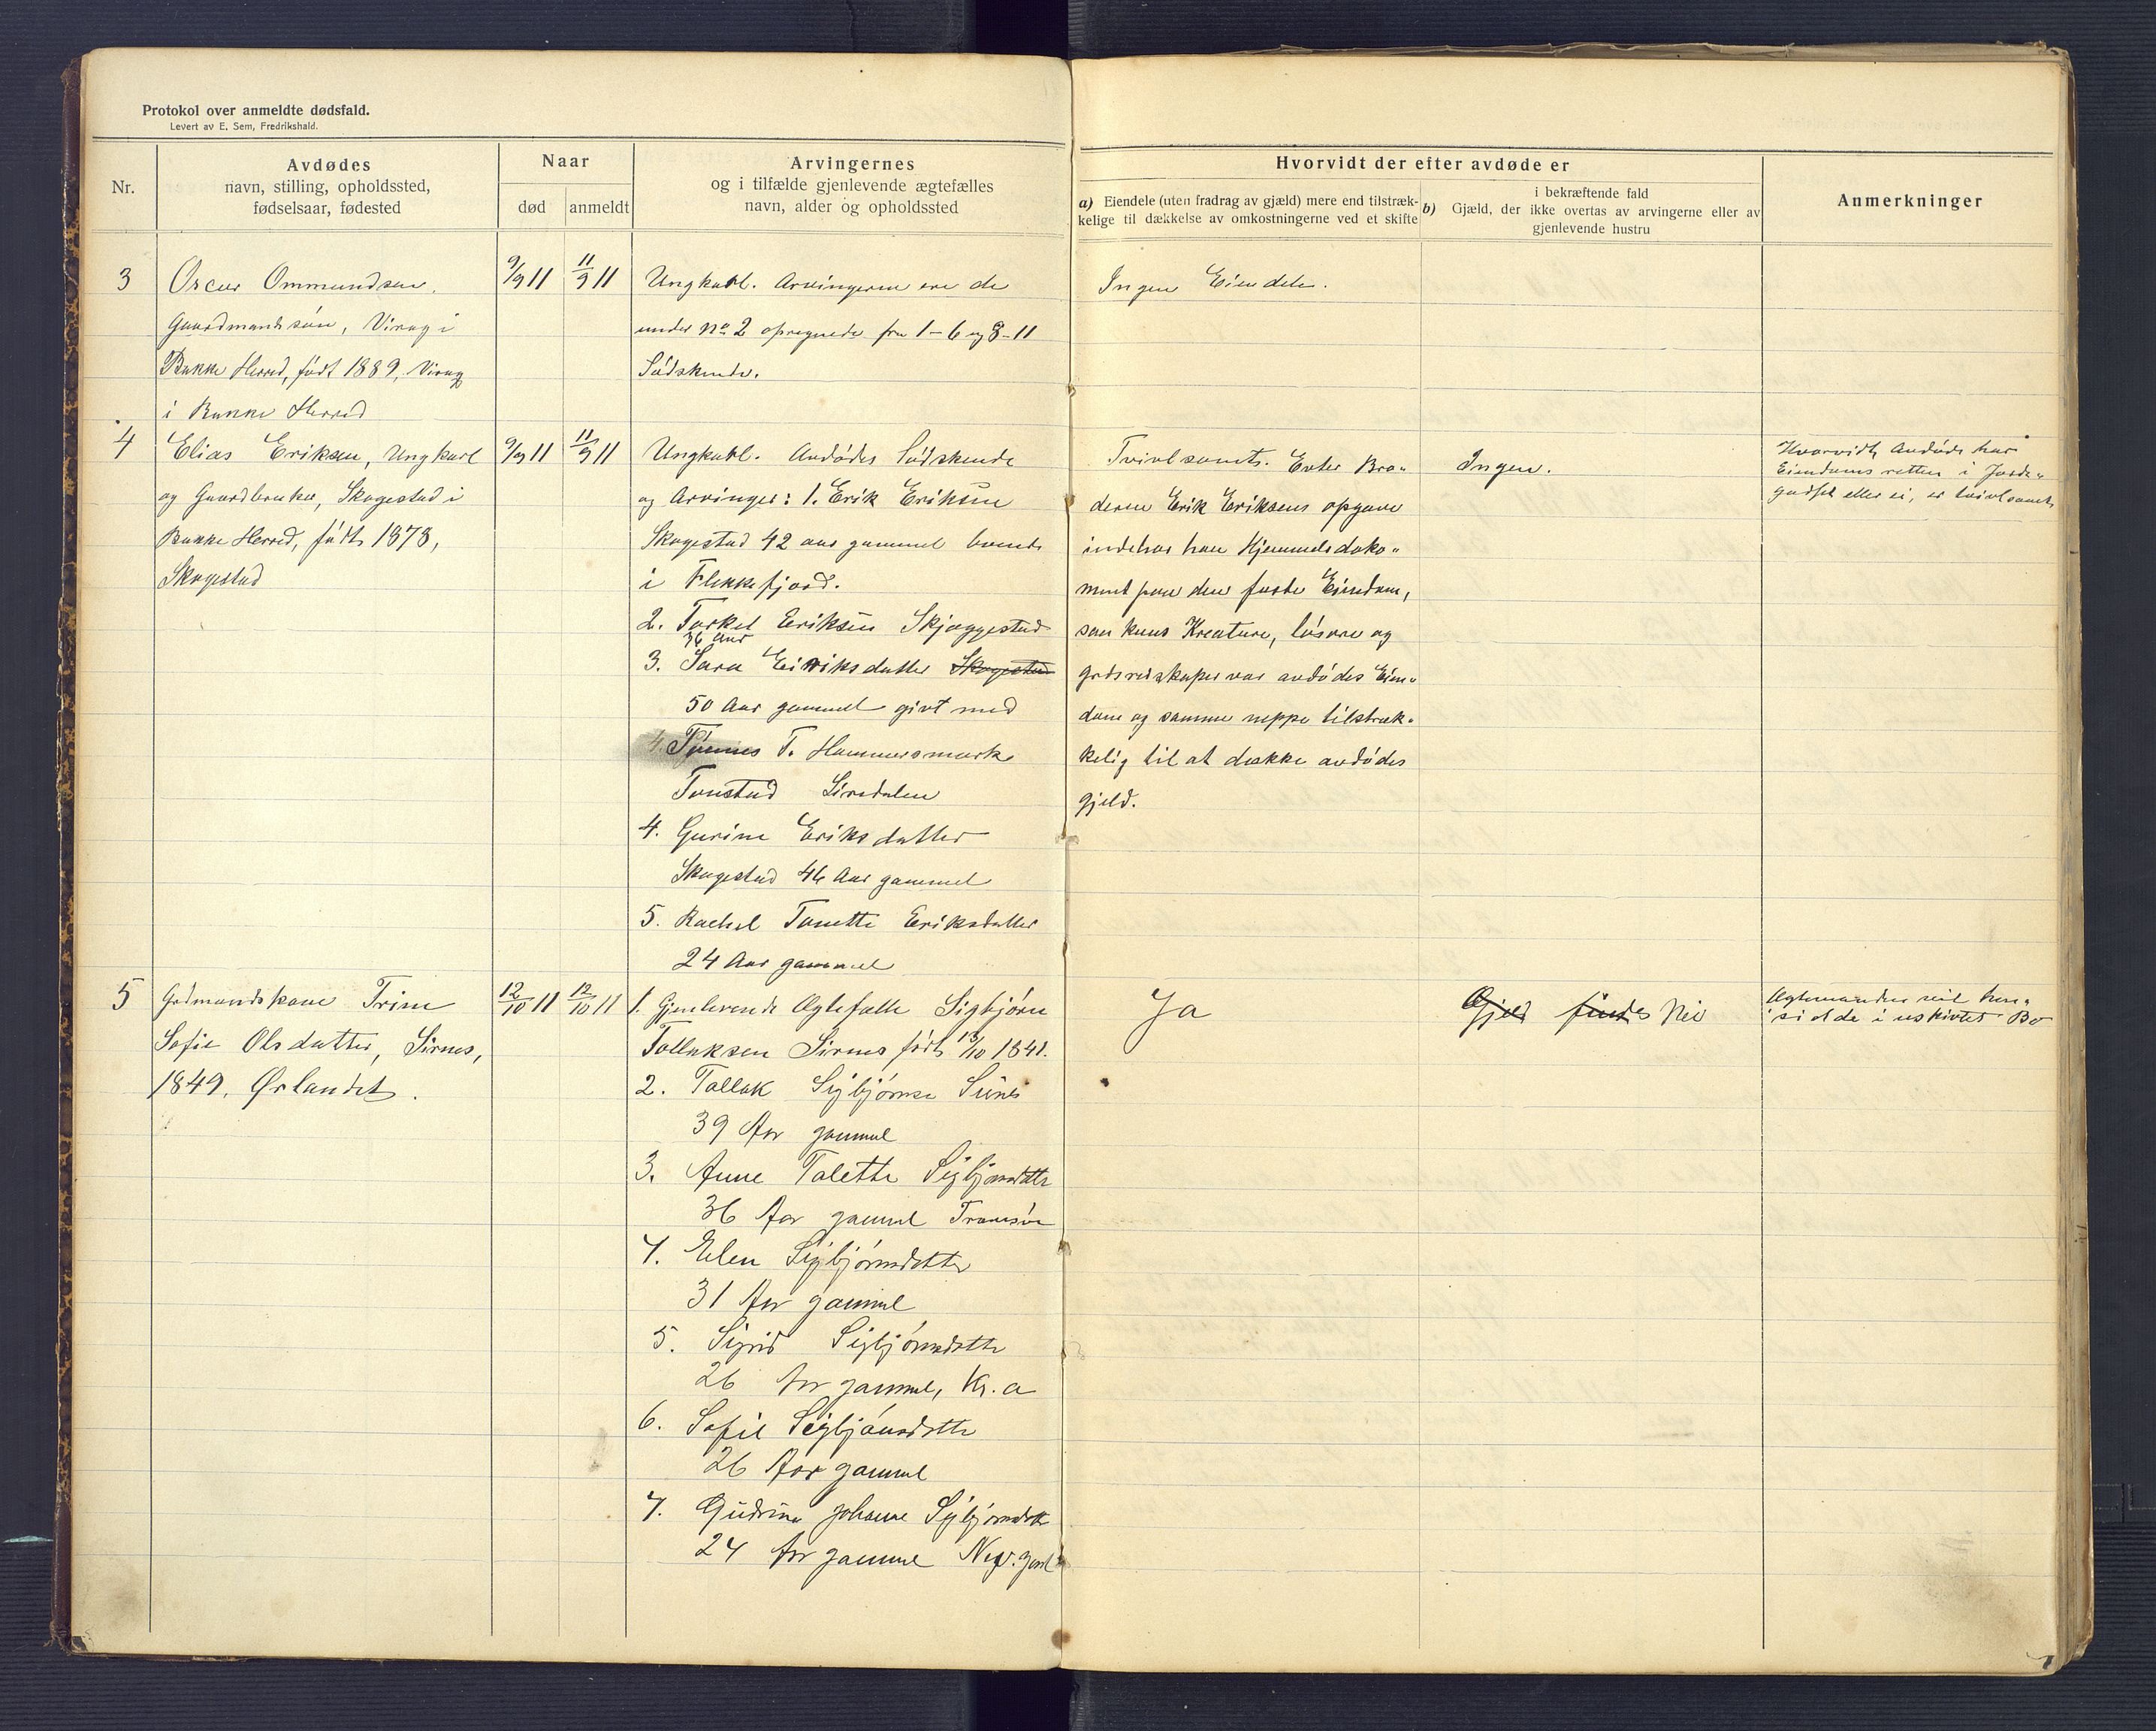 Protokol over anmeldte dødsfald.
Levert av E. Sem, Fredrikshald.
Nr.
Avdødes
navn, stilling, opholdssted,
fødselsaar, fødested
Naar
død
anmeldt
Arvingernes
og i tilfælde gjenlevende ægtefælles
navn, alder og opholdssted
Hvorvidt der efter avdøde er
a) Eiendele (uten fradrag av gjæld) mere end tilstræk-
kelige til dækkelse av omkostningerne ved et skifte
i bekræftende fald
b) Gjæld, der ikke overtas av arvingerne eller av
gjenlevende hustru
Anmerkninger
3
Oscar Ommundsen,
Gaardmandssøn, Virag i
Bakke Herred, født 1889, Virag
i Bakke Herred
9/9 11
11/9 11
Ungkarl. Arvingerne ere de
under No 2 opregnede fra 1-6 og 8-11
Södskende.
Ingen Eiendele.
4
Elias Eriksen, Ungkarl
og Gaardbruker, Skogestad i
Bakke Herred, født 1878,
Skogestad
9/9 11
11/9 11
Ungkarl. Avdødes Södskende
og Arvinger: 1. Erik Eriksen
Skogestad 42 aar gammel boende
i Flekkefjord.
2. Torkel Eriksen Skjæggestad
36 Aar
3. Sara Eiriksdatter Skogestad
50 Aar gammel givt med
4. Tønnes T. Hammersmark
Tonstad Siredalen
4. Gurine Eriksdatter
Skogestad 46 Aar gammel
5. Rachel Tonette Eriksdatter
24 Aar gammel
Tvivlsomt. Efter Bro-
deren Erik Eriksens opgave
indehar han Hjemmelsdoko-
ment paa den faste Eiendom,
saa kuns Kreature, løsøre og
gardsredskaper var avdødes Eien-
dom og samme neppe tilstræk-
kelig til at dække avdødes
gjeld.
Ingen.
Hvorvidt Avdøde har
Eiendomsretten i Jorde-
godset eller ei, er tvivlsomt
5
Gardmandskone Trine
Sofie Olsdatter, Sirnes,
1849. Ørlandet.
12/10 11
12/10 11
1. Gjenlevende Ægtefælle Sigbjørn
Tollaksen Sirnes født 13/10 1841.
2. Tollak Sigbjørnsen Sirnes
39 Aar gammel
3. Anne Talette Sigbjørnsdatter
36 Aar gammel Tromsø
4. Elen Sigbjørnsdatter
31 Aar gammel
5. Sigrid Sigbjørnsdatter
26 Aar gammel, Kr. a
6. Sofie Sigbjørnsdatter
26 Aar gammel
7. Gudrun Johanne Sigbjørnsdatter
24 Aar gammel
Ja
Gjeld findes Nei
Ægtemanden vil hen-
sidde i uskiftet Bo